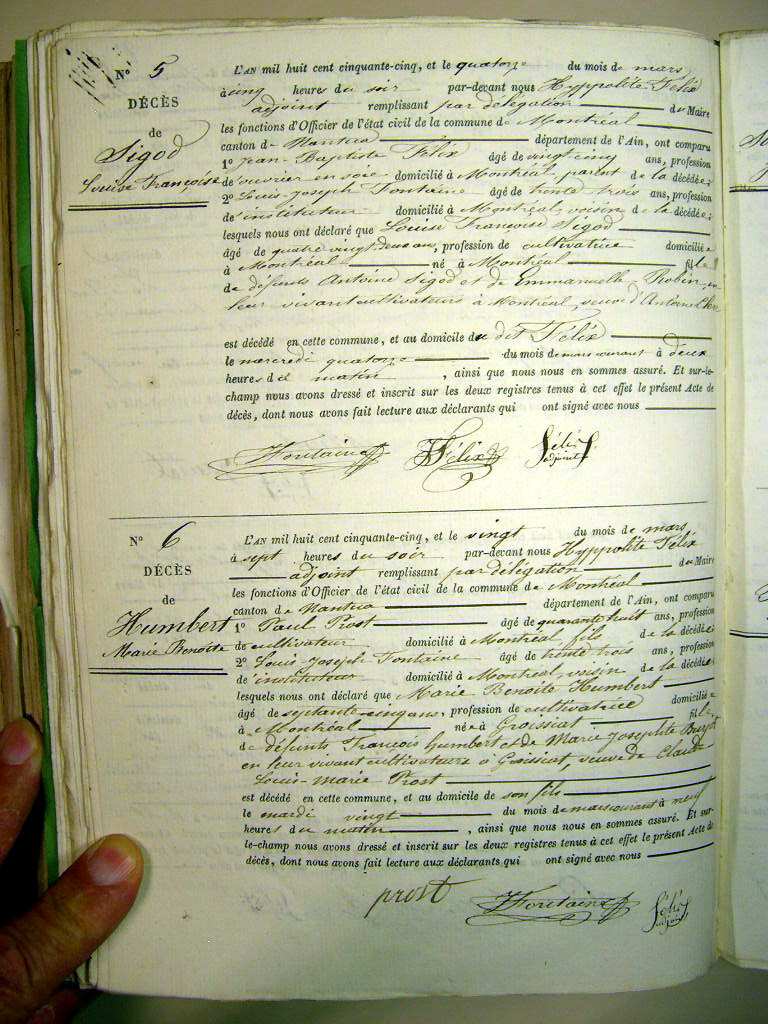 N° 5
DÉCÈS
de
Sigod
Louise Françoise
L'AN mil huit cent cinquante-cinq, et le quatorze du mois de mars
à cinq heures du soir par-devant nous Hyppolite Félix
adjoint remplissant par délégation du Maire
les fonctions d'Officier de l'état civil de la commune de Montréal
canton de Nantua département de l'Ain, ont comparu
1° Jean-Baptiste Félix âgé de vingt cinq ans, profession
de ouvrier en soie domicilié à Montréal, parent de la décédée;
2° Louis Joseph Fontaine âgé de trente trois ans, profession
de instituteur domicilié à Montréal, voisin de la décédée;
lesquels nous ont déclaré que Louise Françoise Sigod
âgé de quatre vingt deux ans, profession de cultivatrice domicilié e
à Montréal né à Montréal fille
de défunts Antoine Sigod et de Emmanuelle Robin, en
leur vivant cultivateurs à Montréal, veuve d'Antoine
est décédé en cette commune, et au domicile du dit Félix
le mercredi quatorze du mois de mars courant à deux
heures du matin, ainsi que nous nous en sommes assuré. Et sur-le-
champ nous avons dressé et inscrit sur les deux registres tenus à cet effet le présent Acte de
décès, dont nous avons fait lecture aux déclarants qui ont signé avec nous
Fontaine Félix Félix
adjoint
N° 6
DÉCÈS
de
Humbert
Marie Benoîte
L'AN mil huit cent cinquante-cinq, et le vingt du mois de mars
à sept heures du soir par-devant nous Hyppolite Félix
adjoint remplissant par délégation du Maire
les fonctions d'Officier de l'état civil de la commune de Montréal
canton de Nantua département de l'Ain, ont comparu
1° Paul Prost âgé de quarante huit ans, profession
de cultivateur domicilié à Montréal, fils de la décédée
2° Louis-Joseph Fontaine âgé de trente trois ans, profession
de instituteur domicilié à Montréal, voisin de la décédée
lesquels nous ont déclaré que Marie Benoîte Humbert
âgé de septante-cinq ans, profession de cultivatrice domicilié e
à Montréal née à Groissiat fille
de défunts François humbert et de Marie Josephte
en leur vivant cultivateurs à Groissiat, veuve de Claude
Louis-Marie Prost
est décédé en cette commune, et au domicile de son fils
le mardi vingt du mois de mars courant à neuf
heures du matin, ainsi que nous nous en sommes assuré. Et sur-
le-champ nous avons dressé et inscrit sur les deux registres tenus à cet effet le présent Acte de
décès, dont nous avons fait lecture aux déclarants qui ont signé avec nous
prost Fontaine Félix
adjoint